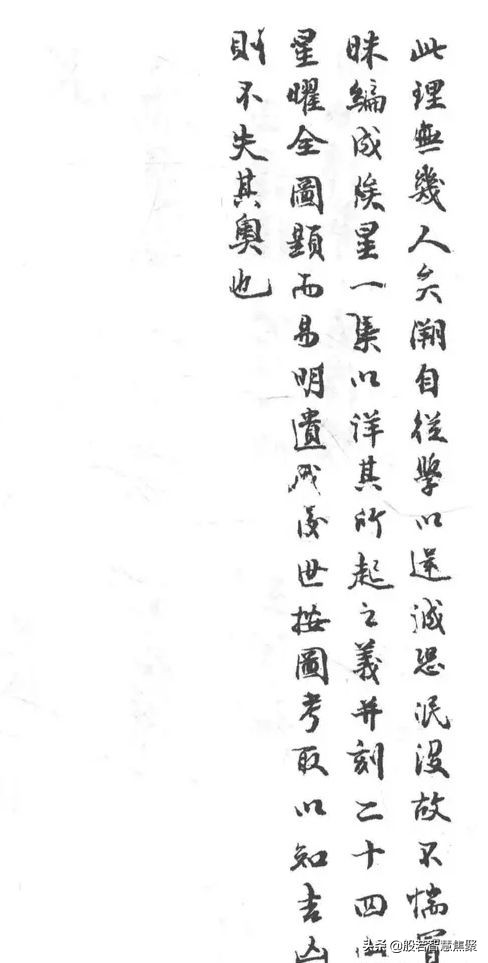 此理無幾人矣溯自從學以逕誠恐泯没故不惴冒
昧編成俟星一集以详其所起之義并刻二十四山
星曜全圖顯而易明遺後世按圖考取以知吉凶
則不失其奥也
头条 @般若智慧焦聚